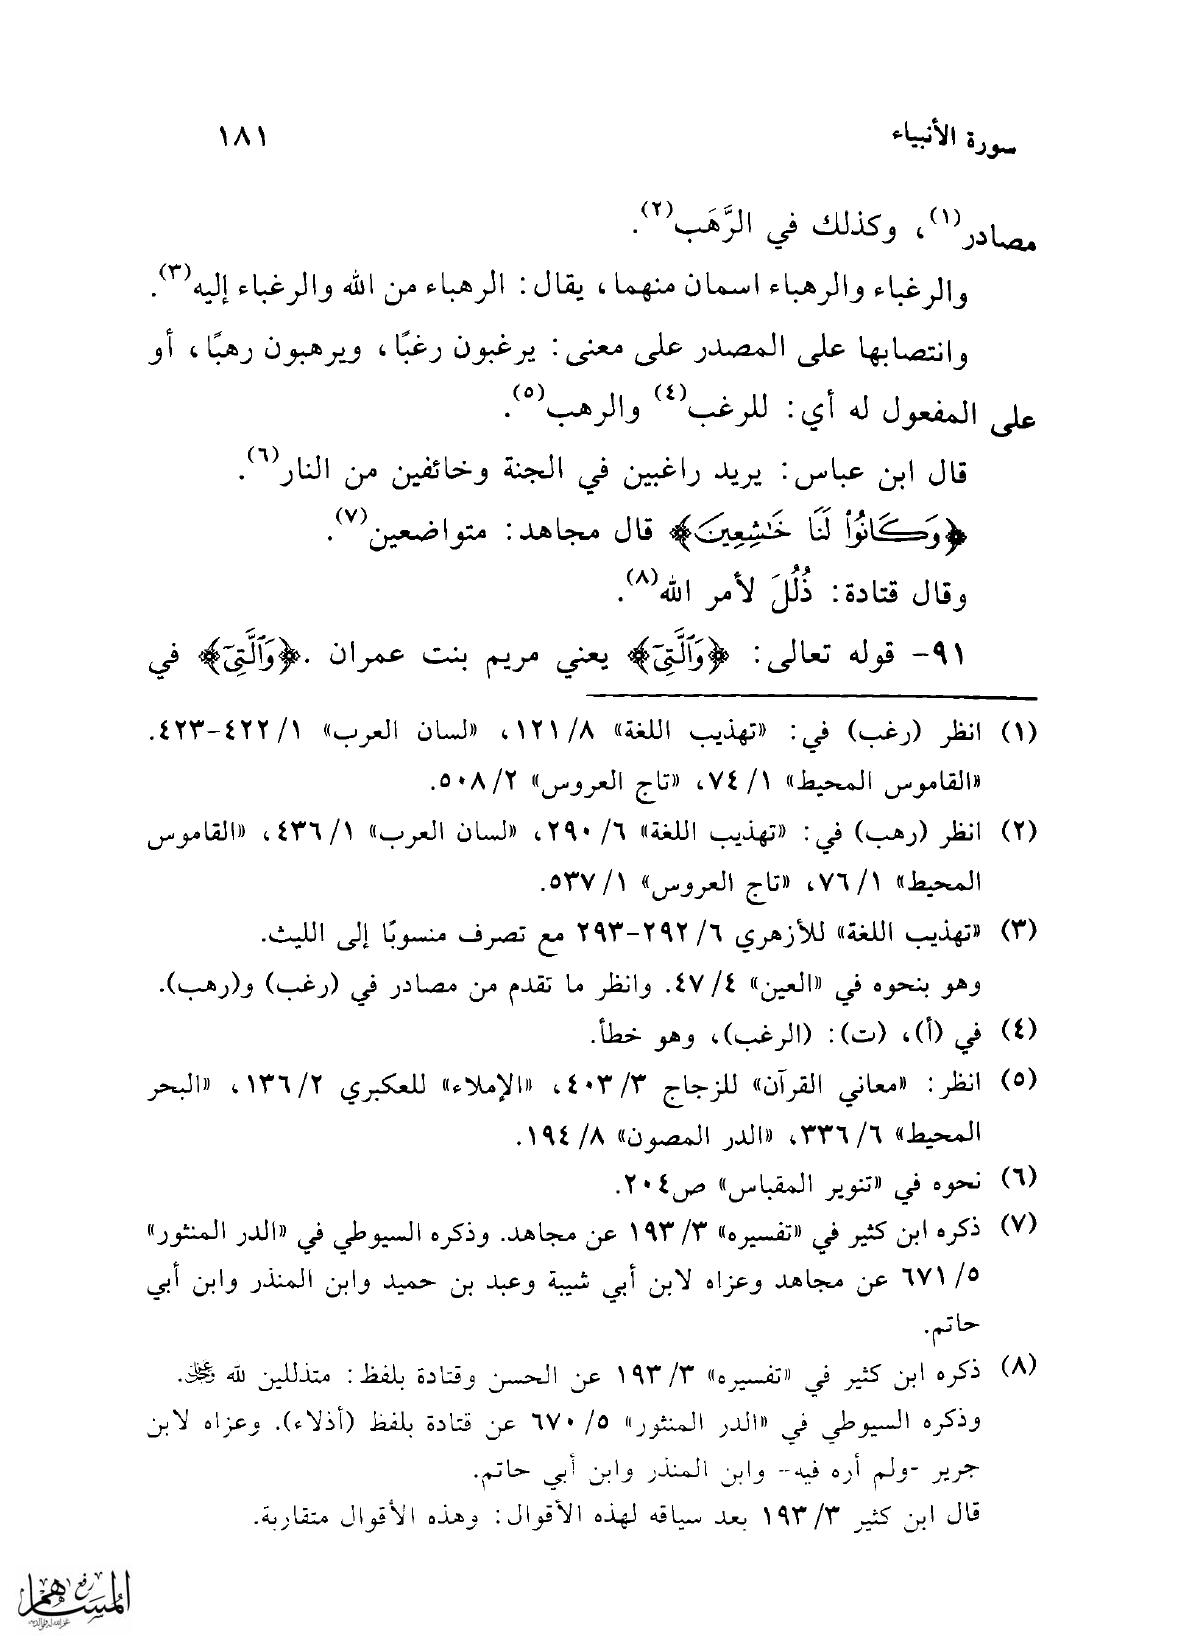 سورة الأنبياء ١٨١
مصادر(١)، وكذلك في الرَّهَب(٢).
والرغباء والرهباء اسمان منهما، يقال: الرهباء من الله والرغباء إليه(٣).
وانتصابها على المصدر على معنى: يرغبون رغبًا، ويرهبون رهبًا، أو
على المفعول له أي: للرغب(٤) والرهب(٥).
قال ابن عباس: يريد راغبين في الجنة وخائفين من النار(٦).
﴿وَكَانُوا۟ لَنَا خَـٰشِعِينَ﴾ قال مجاهد: متواضعين(٧).
وقال قتادة: ذُلُلَ لأمر الله(٨).
٩١- قوله تعالى: ﴿وَٱلَّتِىٓ﴾ يعني مريم بنت عمران .﴿وَٱلَّتِىٓ﴾ في
(١) انظر (رغب) في: «تهذيب اللغة» ٨/ ١٢١، «لسان العرب» ١/ ٤٢٢-٤٢٣.
«القاموس المحيط» ١/ ٧٤، «تاج العروس» ٢/ ٥٠٨.
(٢) انظر (رهب) في: «تهذيب اللغة» ٦/ ٢٩٠، «لسان العرب» ١/ ٤٣٦، «القاموس
المحيط» ١/ ٧٦، «تاج العروس» ١/ ٥٣٧.
(٣) «تهذيب اللغة» للأزهري ٦/ ٢٩٢-٢٩٣ مع تصرف منسوبًا إلى الليث.
وهو بنحوه في «العين» ٤/ ٤٧. وانظر ما تقدم من مصادر في (رغب) و(رهب).
(٤) في (أ)، (ت): (الرغب)، وهو خطأ.
(٥) انظر: «معاني القرآن» للزجاج ٣/ ٤٠٣، «الإملاء» للعكبري ٢/ ١٣٦، «البحر
المحيط» ٦/ ٣٣٦، «الدر المصون» ٨/ ١٩٤.
(٦) نحوه في «تنوير المقباس» ص٢٠٤.
(٧) ذكره ابن كثير في «تفسيره» ٣/ ١٩٣ عن مجاهد. وذكره السيوطي في «الدر المنثور»
٥/ ٦٧١ عن مجاهد وعزاه لابن أبي شيبة وعبد بن حميد وابن المنذر وابن أبي
حاتم.
(٨) ذكره ابن كثير في «تفسيره» ٣/ ١٩٣ عن الحسن وقتادة بلفظ: متذللين لله عز وجل.
وذكره السيوطي في «الدر المنثور» ٥/ ٦٧٠ عن قتادة بلفظ (أذلاء). وعزاه لابن
جرير -ولم أره فيه- وابن المنذر وابن أبي حاتم.
قال ابن كثير ٣/ ١٩٣ بعد سياقه لهذه الأقوال: وهذه الأقوال متقاربة.
رفع
المساهم